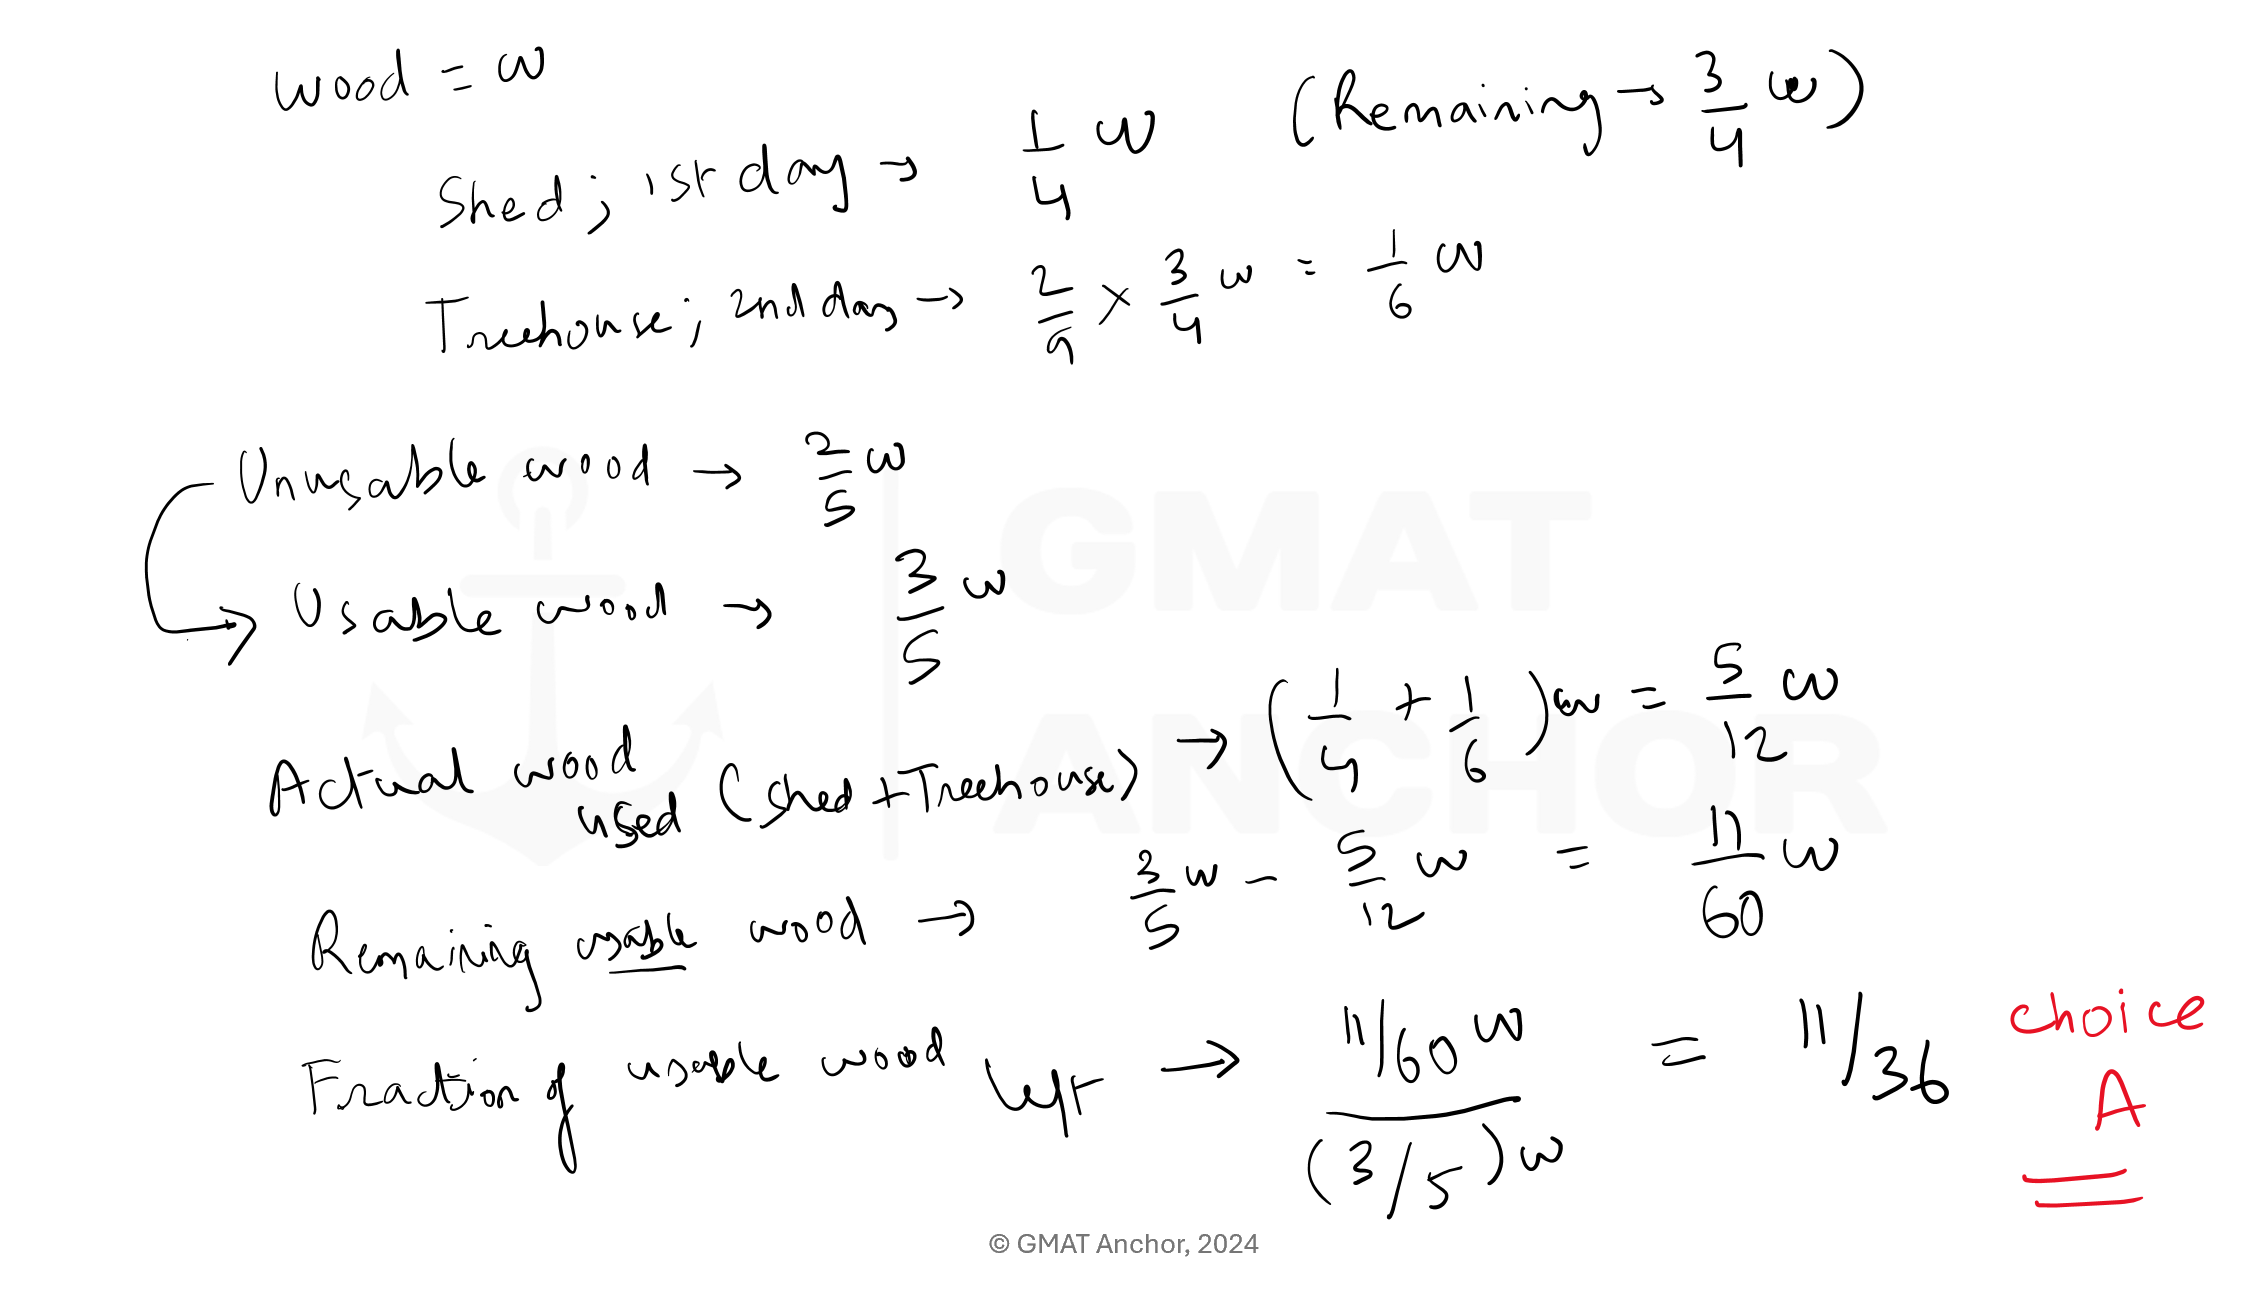 wood = w
Shed; 1st day → 1/4 w (Remaining → 3/4 w)
Treehouse; 2nd day → 2/9 × 3/4 w = 1/6 w
Unusable wood → 2/5 w
Usable wood → 3/5 w
Actual wood used (Shed + Treehouse) → (1/4 + 1/6) w = 5/12 w
Remaining usable wood → 3/5 w - 5/12 w = 11/60 w
Fraction of usable wood left → 11/60 w / (3/5) w = 11/36
choice A
GMAT
ANCHOR
© GMAT Anchor, 2024